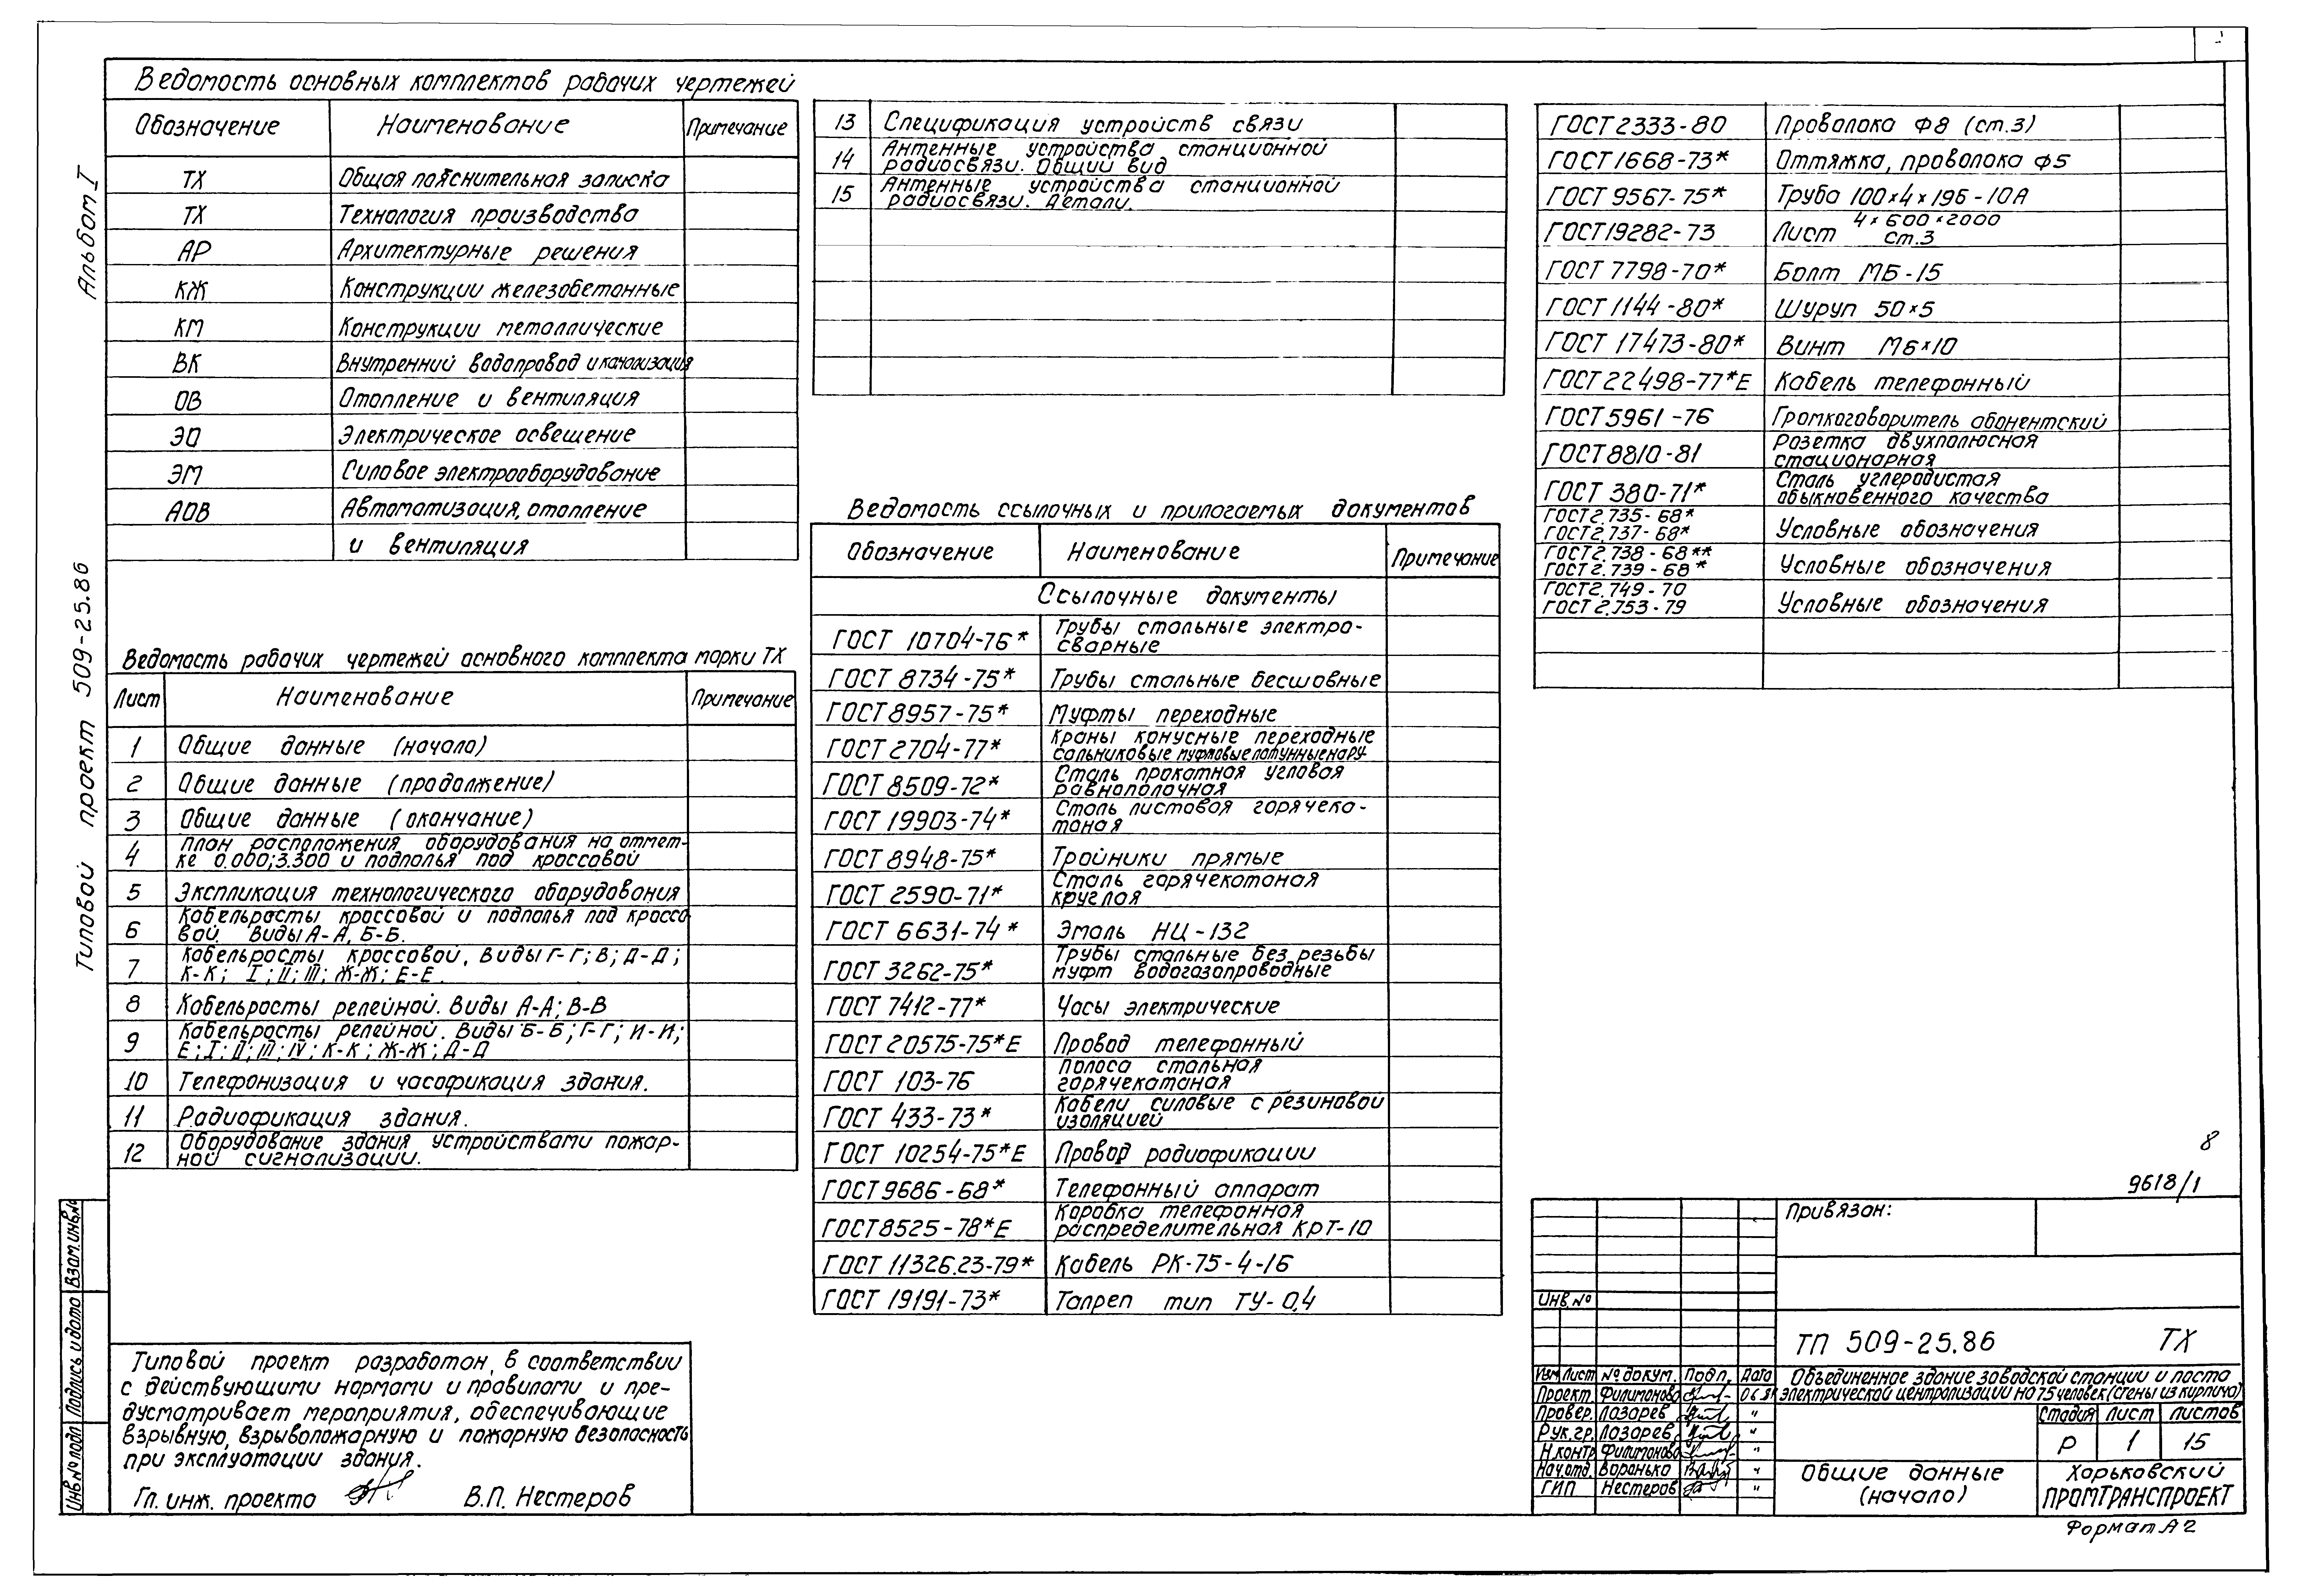 Альбом I
Типовой проект 509-25.86
Ведомость основных комплектов рабочих чертежей
Обозначение Наименование Примечание
ТХ Общая пояснительная записка
ТХ Технология производства
АР Архитектурные решения
КЖ Конструкции железобетонные
КМ Конструкции металлические
ВК Внутренний водопровод и канализация
ОВ Отопление и вентиляция
ЭО Электрическое освещение
ЭМ Силовое электрооборудование
АОВ Автоматизация, отопление
и вентиляция
Ведомость рабочих чертежей основного комплекта марки ТХ
Лист Наименование Примечание
1 Общие данные (начало)
2 Общие данные (продолжение)
3 Общие данные (окончание)
4 План расположения оборудования на отмет-
ке 0.000; 3.300 и подполья под кроссовой
5 Экспликация технологического оборудования
6 Кабельросты кроссовой и подполья под кроссо
вой. Виды А-А, Б-Б.
7 Кабельросты кроссовой. Виды Г-Г; В; Д-Д;
К-К; I; II; III; Ж-Ж; Е-Е.
8 Кабельросты релейной. Виды А-А; В-В
9 Кабельросты релейной. Виды Б-Б; Г-Г; И-И;
Е; I; II; III; IV; К-К; Ж-Ж; Д-Д
10 Телефонизация и часофикация здания.
11 Радиофикация здания.
12 Оборудование здания устройствами пожар-
ной сигнализации.
Типовой проект разработан в соответствии
с действующими нормами и правилами и пре-
дусматривает мероприятия, обеспечивающие
взрывную, взрывопожарную и пожарную безопасность
при эксплуатации здания.
Гл. инж. проекта В.П. Нестеров
13 Спецификация устройств связи
14 Антенные устройства станционной
радиосвязи. Общий вид
15 Антенные устройства станционной
радиосвязи. Детали.
Ведомость ссылочных и прилагаемых документов
Обозначение Наименование Примечание
Ссылочные документы
ГОСТ 10704-76* Трубы стальные электро-
сварные
ГОСТ 8734-75* Трубы стальные бесшовные
ГОСТ 8957-75* Муфты переходные
ГОСТ 2704-77* Краны конусные переходные
сальниковые муфтовые латунные нару-
ГОСТ 8509-72* Сталь прокатная угловая
равнополочная
ГОСТ 19903-74* Сталь листовая горячека-
таная
ГОСТ 8948-75* Тройники прямые
ГОСТ 2590-71* Сталь горячекатаная
круглая
ГОСТ 6631-74* Эмаль НЦ-132
ГОСТ 3262-75* Трубы стальные без резьбы
муфт водогазопроводные
ГОСТ 7412-77* Часы электрические
ГОСТ 20575-75*Е Провод телефонный
ГОСТ 103-76 Полоса стальная
горячекатаная
ГОСТ 433-73* Кабели силовые с резиновой
изоляцией
ГОСТ 10254-75*Е Провод радиофикации
ГОСТ 9686-68* Телефонный аппарат
ГОСТ 8525-78*Е Коробка телефонная
распределительная КРТ-10
ГОСТ 11326.23-79* Кабель РК-75-4-16
ГОСТ 19191-73* Талреп тип ТУ-0,4
ГОСТ 2333-80 Проволока Ф8 (ст.3)
ГОСТ 1668-73* Оттяжка, проволока Ф5
ГОСТ 9567-75* Труба 100×4×195-10А
ГОСТ 19282-73 Лист 4×600×2000
ст.3
ГОСТ 7798-70* Болт МБ-15
ГОСТ 1144-80* Шуруп 50×5
ГОСТ 17473-80* Винт М6×10
ГОСТ 22498-77*Е Кабель телефонный
ГОСТ 5961-76 Громкоговоритель абонентский
ГОСТ 8810-81 Розетка двухполюсная
стационарная
ГОСТ 380-71* Сталь углеродистая
обыкновенного качества
ГОСТ 2.735-68*
ГОСТ 2.737-68* Условные обозначения
ГОСТ 2.738-68**
ГОСТ 2.739-68* Условные обозначения
ГОСТ 2.749-70
ГОСТ 2.753-79 Условные обозначения
8
9618/1
Привязан:
Инв. №
ТП 509-25.86 ТХ
Изм Лист № докум. Подп. Дата
Объединенное здание заводской станции и поста
электрической централизации на 75 человек (стены из кирпича)
Проект. Филимонова
Провер. Лазарев "
Рук. гр. Лазарев "
Н. контр Филимонова "
Нач. отд. Воронько "
ГИП Нестеров "
Стадия Лист Листов
Р 1 15
Общие данные
(начало)
Харьковский
ПРОМТРАНСПРОЕКТ
Формат А2
Инв № подл Подпись и дата Взам. инв. №